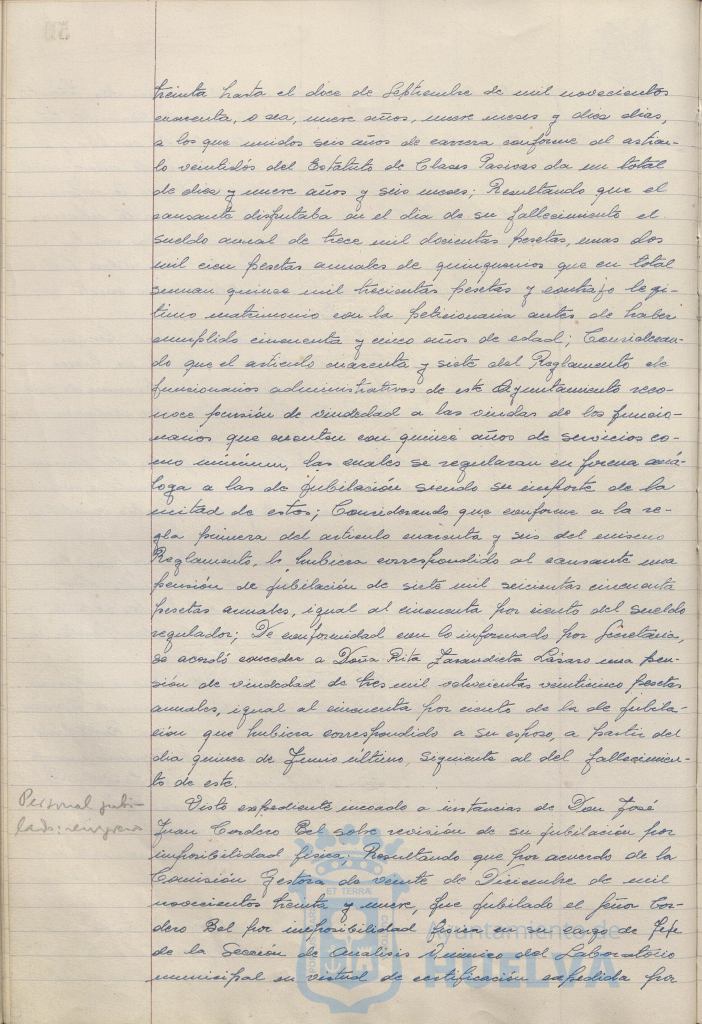 treinta hasta el doce de Septiembre de mil novecientos
cuarenta, o sea, nueve años, nueve meses y diez dias,
a los que unidos seis años de carrera conforme al artícu-
lo veintidós del Estatuto de Clases Pasivas da un total
de diez y nueve años y seis meses; Resultando que el
causante disfrutaba en el dia de su fallecimiento el
sueldo anual de trece mil docientas pesetas, mas dos
mil cien pesetas anuales de quinquenios que en total
suman quince mil trecientas pesetas y contrajo legí-
timo matrimonio con la peticionaria antes de haber
cumplido cincuenta y cinco años de edad; Consideran-
do que el artículo cuarenta y siete del Reglamento de
funcionarios administrativos de este Ayuntamiento reco-
noce pensión de viudedad a las viudas de los funcio-
narios que cuenten con quince años de servicios co-
mo mínimum, las cuales se regularan en forma aná-
loga a las de jubilación siendo su importe de la
mitad de estos; Considerando que conforme a la re-
gla primera del artículo cuarenta y seis del mismo
Reglamento, le hubiera correspondido al causante una
pensión de jubilación de siete mil seicientas cincuenta
pesetas anuales, igual al cincuenta por ciento del sueldo
regulador; De conformidad con lo informado por Secretaria,
se acordó conceder a Doña Rita Lázaro una pen-
sión de viudedad de tres mil ochocientas veinticinco pesetas
anuales, igual al cincuenta por ciento de la de jubila-
ción que hubiera correspondido a su esposo, a partir del
dia quince de Junio último, siguiente al del fallecimien-
to de este.
Personal jubi-
lado:
Visto expediente incoado a instancias de Don José
Juan Cordero Bel sobre revisión de su jubilación por
imposibilidad física; Resultando que por acuerdo de la
Comisión Gestora de veinte de Diciembre de mil
novecientos treinta y nueve, fue jubilado el Señor Cor-
dero Bel por imposibilidad física en su cargo de Jefe
de la Sección de Analisis Quimico del Laboratorio
municipal en virtud de certificación expedida por
Ayuntamiento de
HUELVA
ET TERRÆ